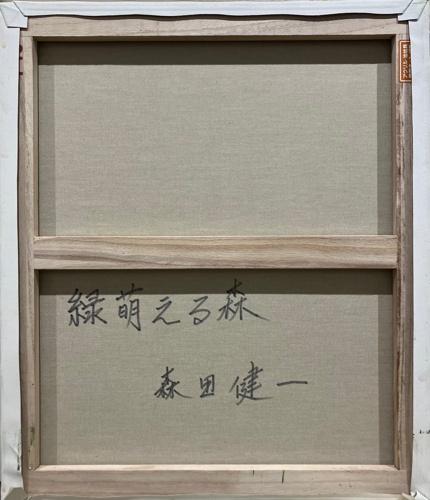 緑萌える森
森田健一